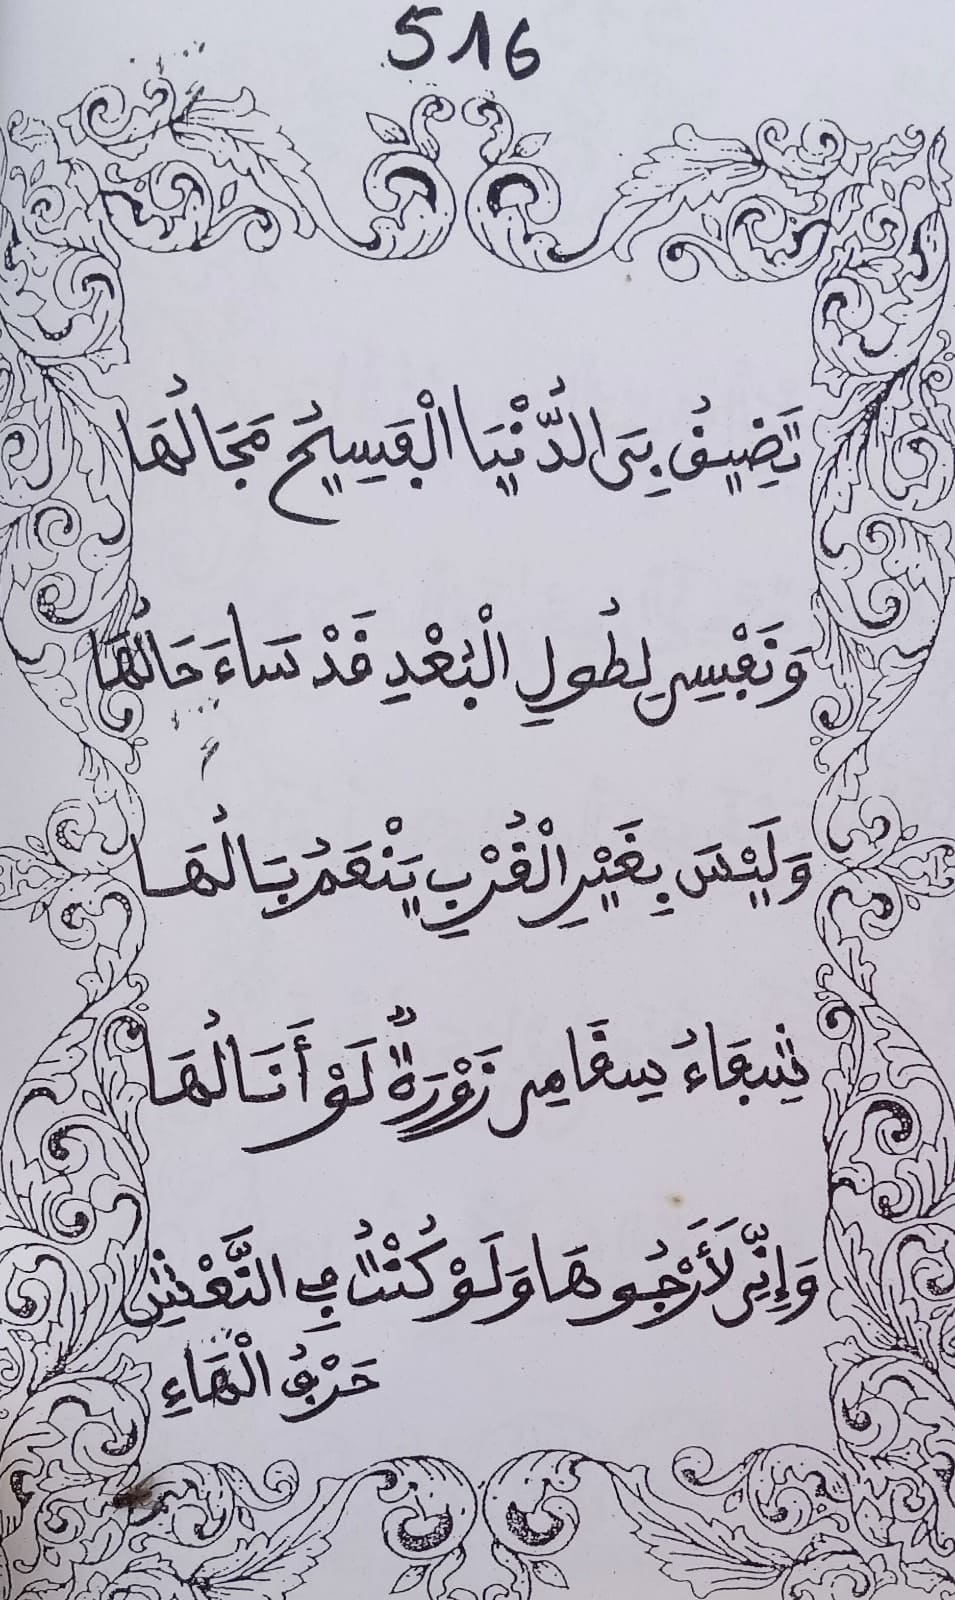 516
تَضِيقُ بِيَ الدُّنْيَا الْفَسِيحُ مَجَالُهَا
وَنَفْسِي لِطُولِ الْبُعْدِ قَدْ سَاءَ حَالُهَا
وَلَيْسَ بِغَيْرِ الْقُرْبِ يَنْعَمُ بَالُهَا
شِفَاءُ سِقَامِي زَوْرَةٌ لَوْ أَنَالُهَا
وَإِنِّي لَأَرْجُوهَا وَلَوْ كُنْتُ فِي النَّعْشِ
حَرْفُ الْهَاءِ